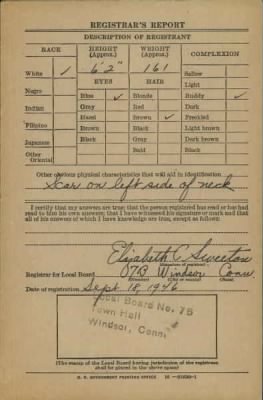 REGISTRAR'S REPORT
DESCRIPTION OF REGISTRANT
RACE HEIGHT (Approx.) WEIGHT (Approx.) COMPLEXION
White ✓ 6'2" 161 Sallow
EYES HAIR Light
Negro Blue ✓ Blonde Ruddy ✓
Indian Gray Red Dark
Filipino Hazel Brown ✓ Freckled
Brown Black Light brown
Japanese Black Gray Dark brown
Other Oriental Bald Black
Other obvious physical characteristics that will aid in identification
Scar on left side of neck
I certify that my answers are true; that the person registered has read or has had
read to him his own answers; that I have witnessed his signature or mark and that
all of his answers of which I have knowledge are true, except as follows:
Elizabeth C. Sweeton
(Signature of registrar)
Registrar for Local Board 07B Windsor Conn.
(City or county) (State)
Date of registration Sept. 18, 1946
Local Board No. 7B
Town Hall
Windsor, Conn.
(The stamp of the Local Board having jurisdiction of the registrant
shall be placed in the above space)
U. S. GOVERNMENT PRINTING OFFICE